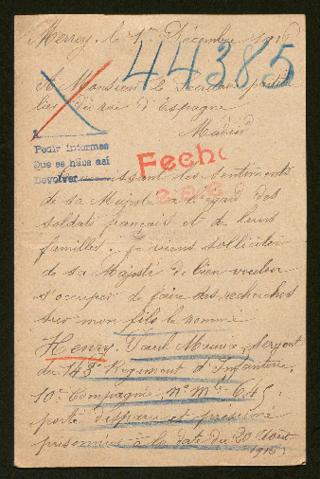 Merrey, le 1er Décembre 1916
44385
A Monsieur le Secrétaire particu
lier du roi d'Espagne
Madrid
Pedir informes
Que se haga así
Devolver
Fecho
sentiments
de sa Majesté à l'égard des
soldats français et de leurs
familles. je viens solliciter
de sa Majesté de bien vouloir
s'occuper de faire des recherches
sur mon fils le nommé
Henry, Maurice, sergent
du 148e Régiment d'Infanterie,
10e Compagnie, No Mle 645
porté disparu et présumé
prisonnier à la date du 20 Août
1915